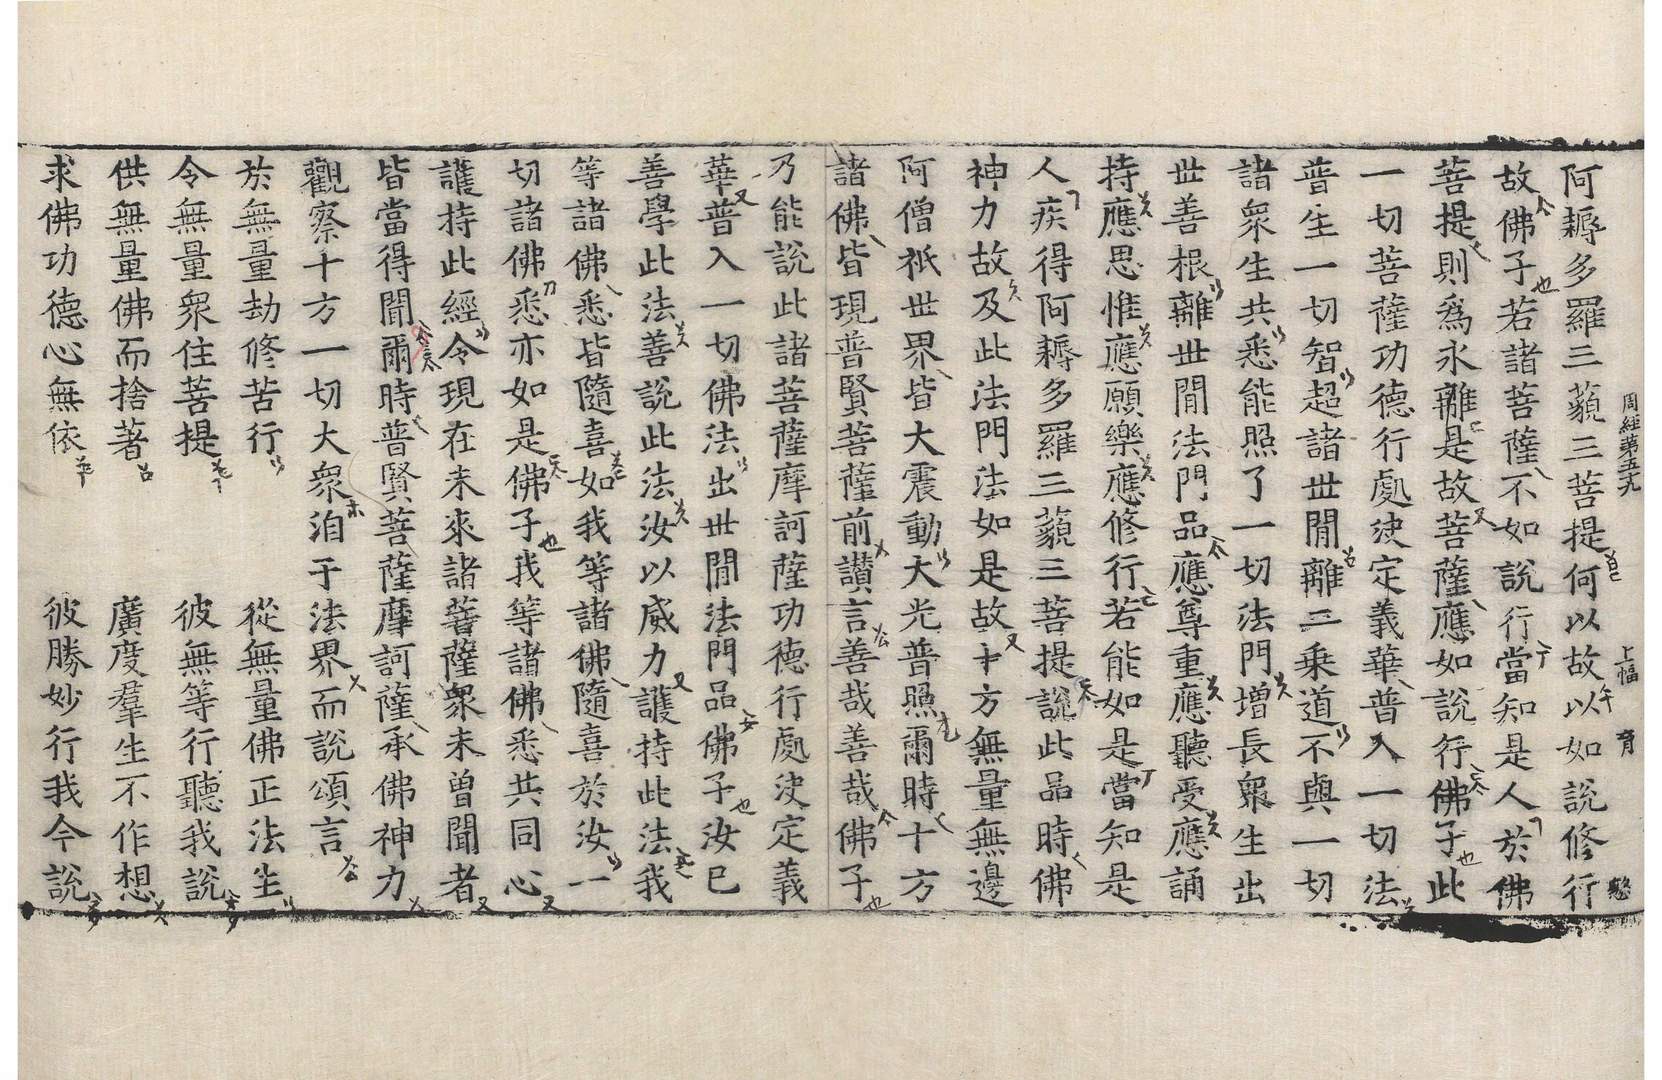 周經第五九　上幅　育　愗
阿耨多羅三藐三菩提何以故以如說修行
故佛子若諸菩薩不如說行當知是人於佛
菩提則為永離是故菩薩應如說行佛子此
一切菩薩功德行處決定義華普入一切法
普生一切智超諸世閒離二乘道不與一切
諸眾生共悉能照了一切法門增長眾生出
世善根離世閒法門品應尊重應聽受應誦
持應思惟應願樂應修行若能如是當知是
人疾得阿耨多羅三藐三菩提說此品時佛
神力故及此法門法如是故十方無量無邊
阿僧祇世界皆大震動大光普照爾時十方
諸佛皆現普賢菩薩前讚言善哉善哉佛子
乃能說此諸菩薩摩訶薩功德行處決定義
華普入一切佛法出世閒法門品佛子汝已
善學此法善說此法汝以威力護持此法我
等諸佛悉皆隨喜如我等諸佛隨喜於汝一
切諸佛悉亦如是佛子我等諸佛悉共同心
護持此經令現在未來諸菩薩眾未曾聞者
皆當得聞爾時普賢菩薩摩訶薩承佛神力
觀察十方一切大眾洎于法界而說頌言
於無量劫修苦行　從無量佛正法生
令無量眾住菩提　彼無等行聽我說
供無量佛而捨著　廣度羣生不作想
求佛功德心無依　彼勝妙行我今說